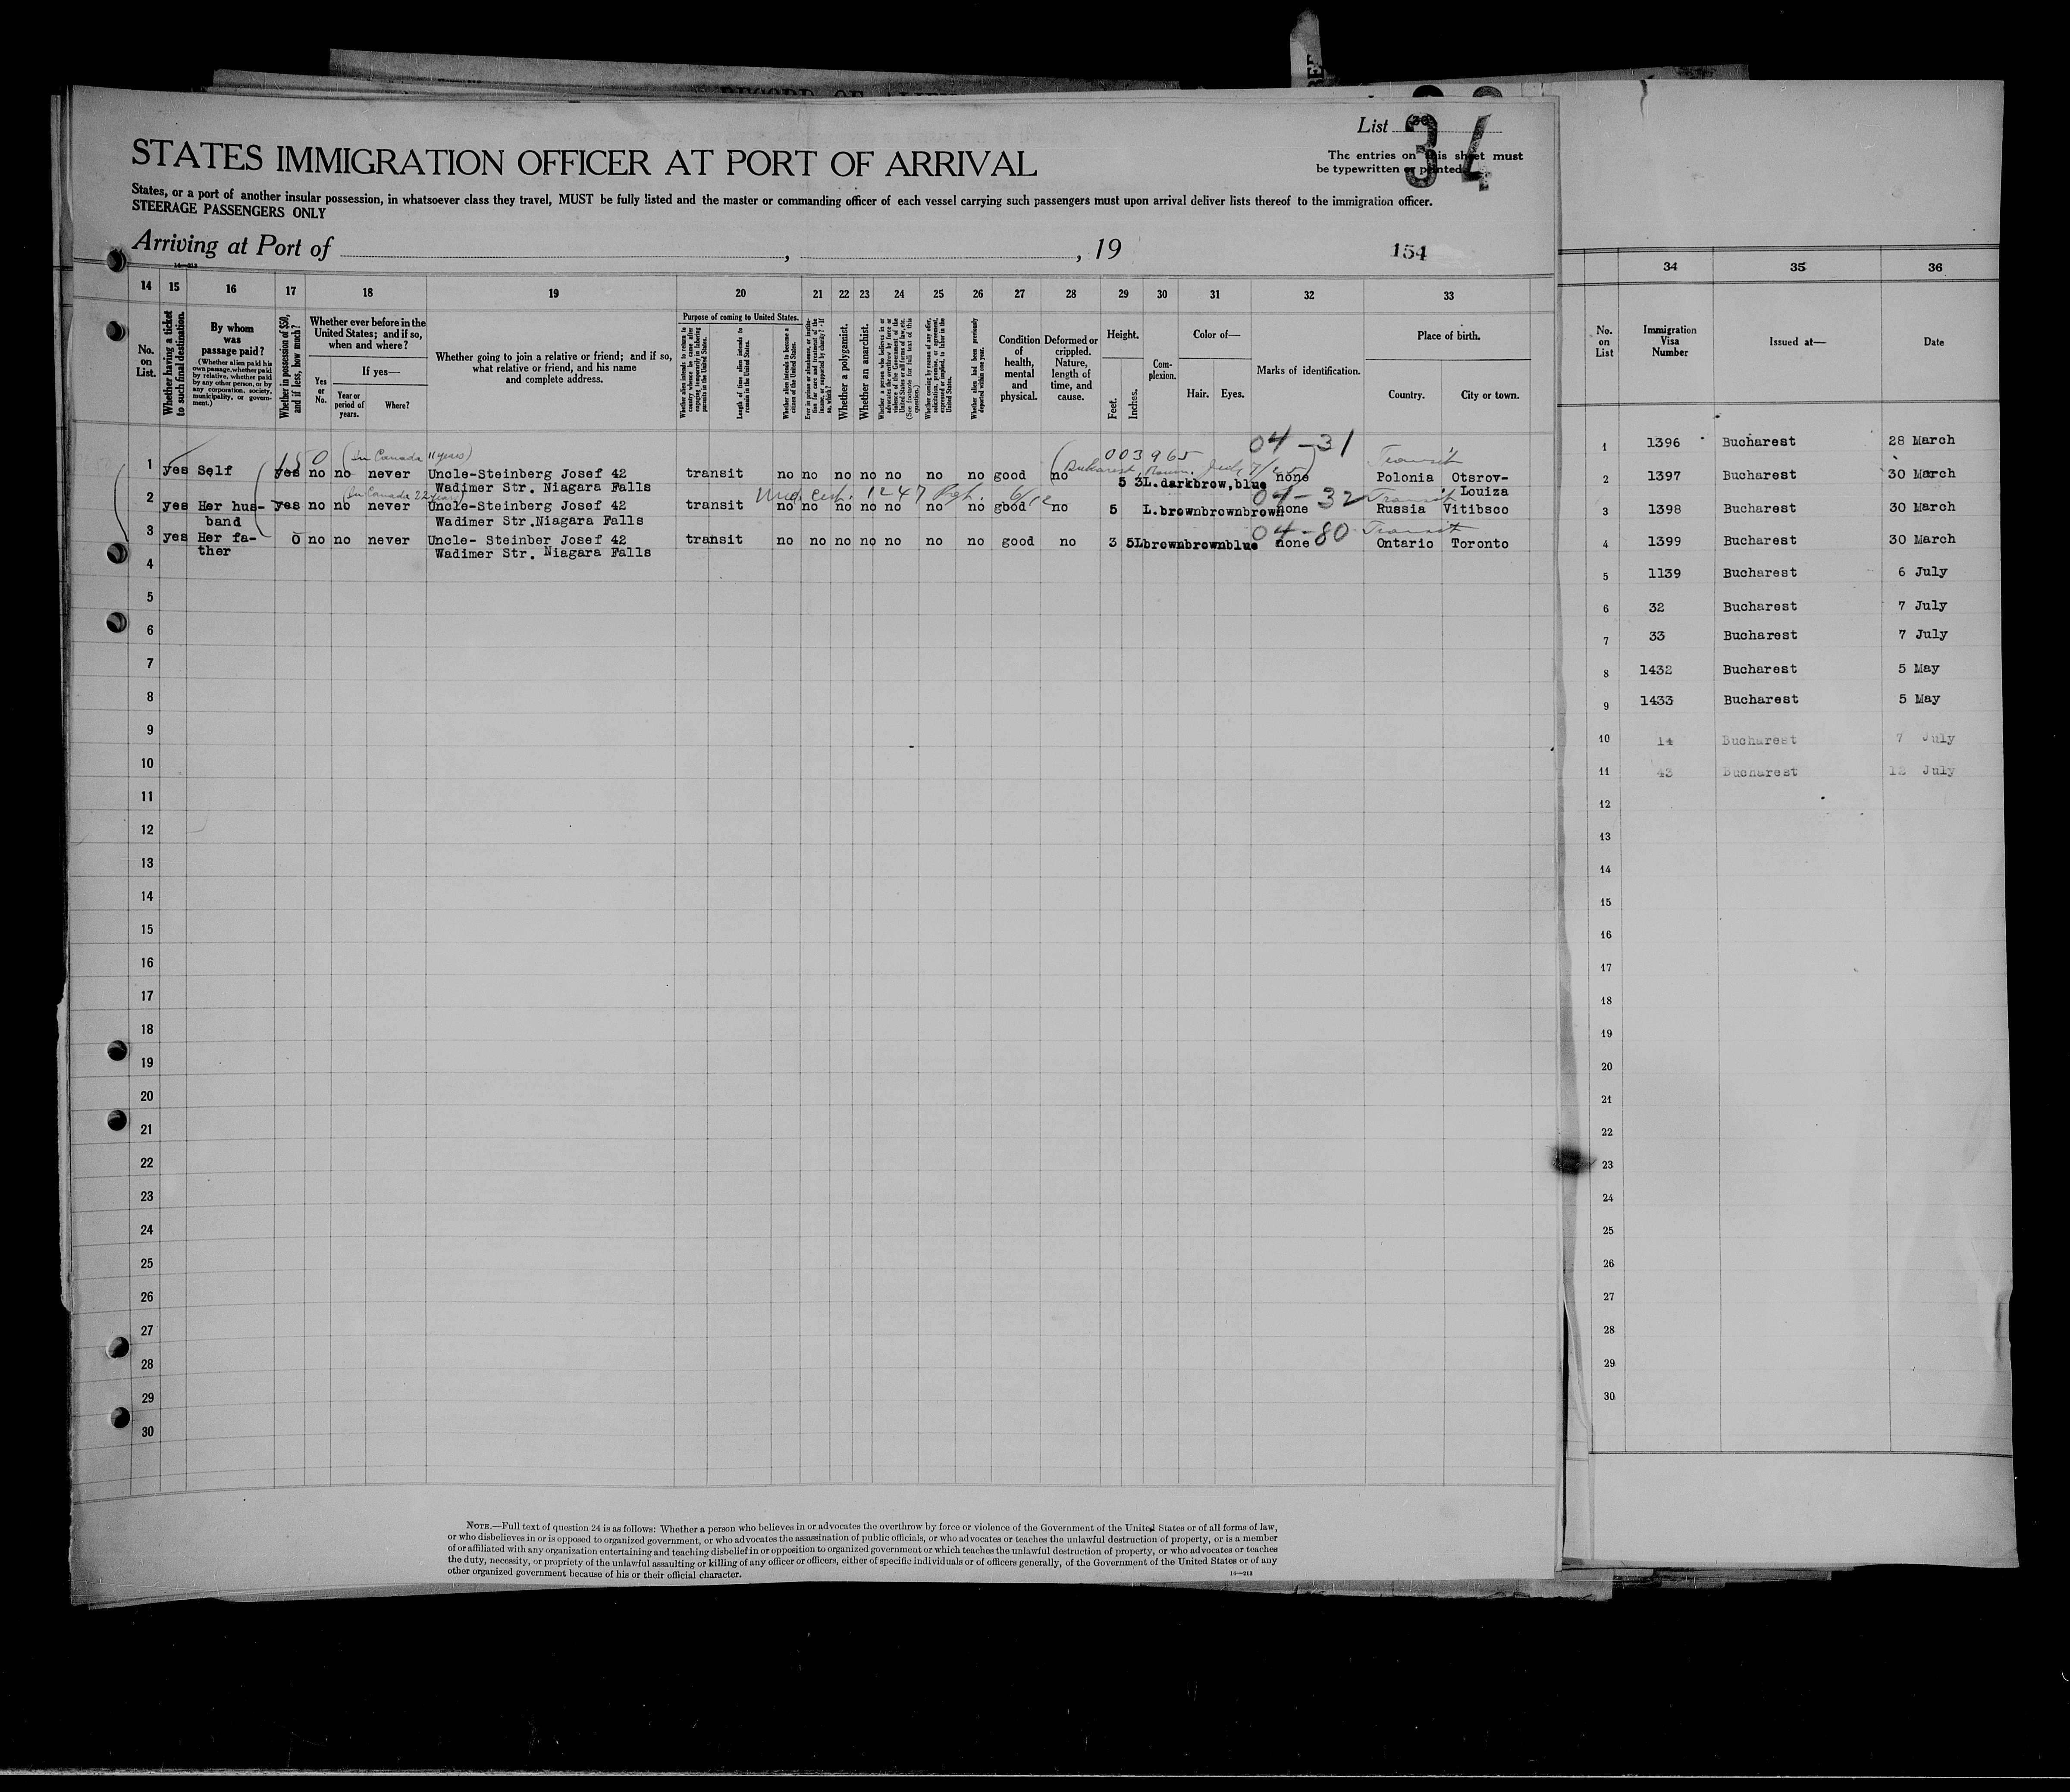 RECORD OF ALIEN
List 30
34
STATES IMMIGRATION OFFICER AT PORT OF ARRIVAL
The entries on this sheet must
be typewritten or printed.
States, or a port of another insular possession, in whatsoever class they travel, MUST be fully listed and the master or commanding officer of each vessel carrying such passengers must upon arrival deliver lists thereof to the immigration officer.
STEERAGE PASSENGERS ONLY
Arriving at Port of , , 19
154
14—213
14 15 16 17 18 19 20 21 22 23 24 25 26 27 28 29 30 31 32 33
No. on List.
Whether having a ticket to such final destination.
By whom was passage paid?
(Whether alien paid his own passage, whether paid by relative, whether paid by any other person, or by any corporation, society, municipality, or government.)
Whether in possession of $50, and if less, how much?
Whether ever before in the United States; and if so, when and where?
Yes or No.
If yes—
Year or period of years.
Where?
Whether going to join a relative or friend; and if so, what relative or friend, and his name and complete address.
Purpose of coming to United States.
Length of time alien intends to remain in the United States.
Whether alien intends to become a citizen of the United States.
Whether a polygamist.
Whether an anarchist.
Condition of health, mental and physical.
Deformed or crippled. Nature, length of time, and cause.
Height.
Feet.
Inches.
Complexion.
Color of—
Hair.
Eyes.
Marks of identification.
Place of birth.
Country.
City or town.
180 (In Canada 11 years) 003965 04-31 Transit
1 yes Self yes no no never Uncle-Steinberg Josef 42 transit no no no no no no no good no 5 3 L.dark brow, blue none Polonia Otsrov-
Wadimer Str. Niagara Falls Louiza
(In Canada 22 years) 1247 04-32 Transit
2 yes Her hus- yes no no never Uncle-Steinberg Josef 42 transit no no no no no no no good no 5 L.brown brown brown none Russia Vitibsco
band Wadimer Str.Niagara Falls
04-80 Transit
3 yes Her fa- 0 no no never Uncle- Steinber Josef 42 transit no no no no no no no good no 3 5 L brown brown blue none Ontario Toronto
ther Wadimer Str. Niagara Falls
4
5
6
7
8
9
10
11
12
13
14
15
16
17
18
19
20
21
22
23
24
25
26
27
28
29
30
NOTE.—Full text of question 24 is as follows: Whether a person who believes in or advocates the overthrow by force or violence of the Government of the United States or of all forms of law,
or who disbelieves in or is opposed to organized government, or who advocates the assassination of public officials, or who advocates or teaches the unlawful destruction of property, or is a member
of or affiliated with any organization entertaining and teaching disbelief in or opposition to organized government or which teaches the unlawful destruction of property, or who advocates or teaches
the duty, necessity, or propriety of the unlawful assaulting or killing of any officer or officers, either of specific individuals or of officers generally, of the Government of the United States or of any
other organized government because of his or their official character.
14—213
34 35 36
No. on List
Immigration Visa Number
Issued at—
Date
1 1396 Bucharest 28 March
2 1397 Bucharest 30 March
3 1398 Bucharest 30 March
4 1399 Bucharest 30 March
5 1139 Bucharest 6 July
6 32 Bucharest 7 July
7 33 Bucharest 7 July
8 1432 Bucharest 5 May
9 1433 Bucharest 5 May
10 14 Bucharest 7 July
11 43 Bucharest 12 July
12
13
14
15
16
17
18
19
20
21
22
23
24
25
26
27
28
29
30